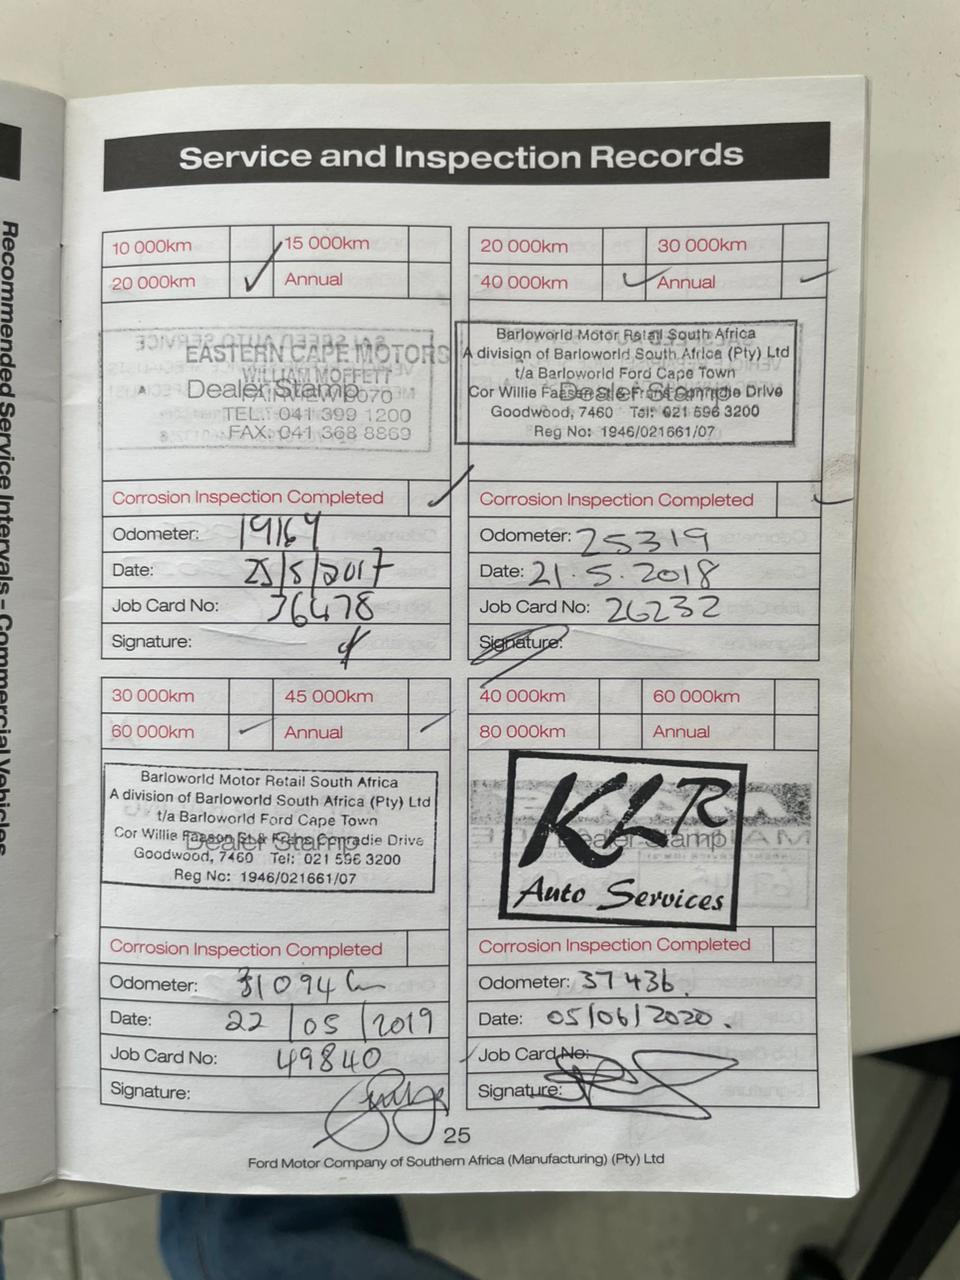 Recommended Service Intervals - Commercial Vehicles
Service and Inspection Records
10 000km 15 000km
20 000km Annual
EASTERN CAPE MOTORS
WILLIAM MOFFETT
Dealer Stamp
TEL.: 041 399 1200
FAX: 041 368 8869
Corrosion Inspection Completed
Odometer: 19164
Date: 25/5/2017
Job Card No: 36478
Signature:
20 000km 30 000km
40 000km Annual
Barloworld Motor Retail South Africa
A division of Barloworld South Africa (Pty) Ltd
t/a Barloworld Ford Cape Town
Dealer Stamp
Cor Willie Faasen St & Frans Conradie Drive
Goodwood, 7460 Tel: 021 596 3200
Reg No: 1946/021661/07
Corrosion Inspection Completed
Odometer: 25319
Date: 21.5.2018
Job Card No: 26232
Signature:
30 000km 45 000km
60 000km Annual
Barloworld Motor Retail South Africa
A division of Barloworld South Africa (Pty) Ltd
t/a Barloworld Ford Cape Town
Cor Willie Faasen St & Frans Conradie Drive
Dealer Stamp
Goodwood, 7460 Tel: 021 596 3200
Reg No: 1946/021661/07
Corrosion Inspection Completed
Odometer: 31094
Date: 22/05/2019
Job Card No: 49840
Signature:
40 000km 60 000km
80 000km Annual
KLR
Dealer Stamp
Auto Services
Corrosion Inspection Completed
Odometer: 37436.
Date: 05/06/2020.
Job Card No:
Signature:
25
Ford Motor Company of Southern Africa (Manufacturing) (Pty) Ltd